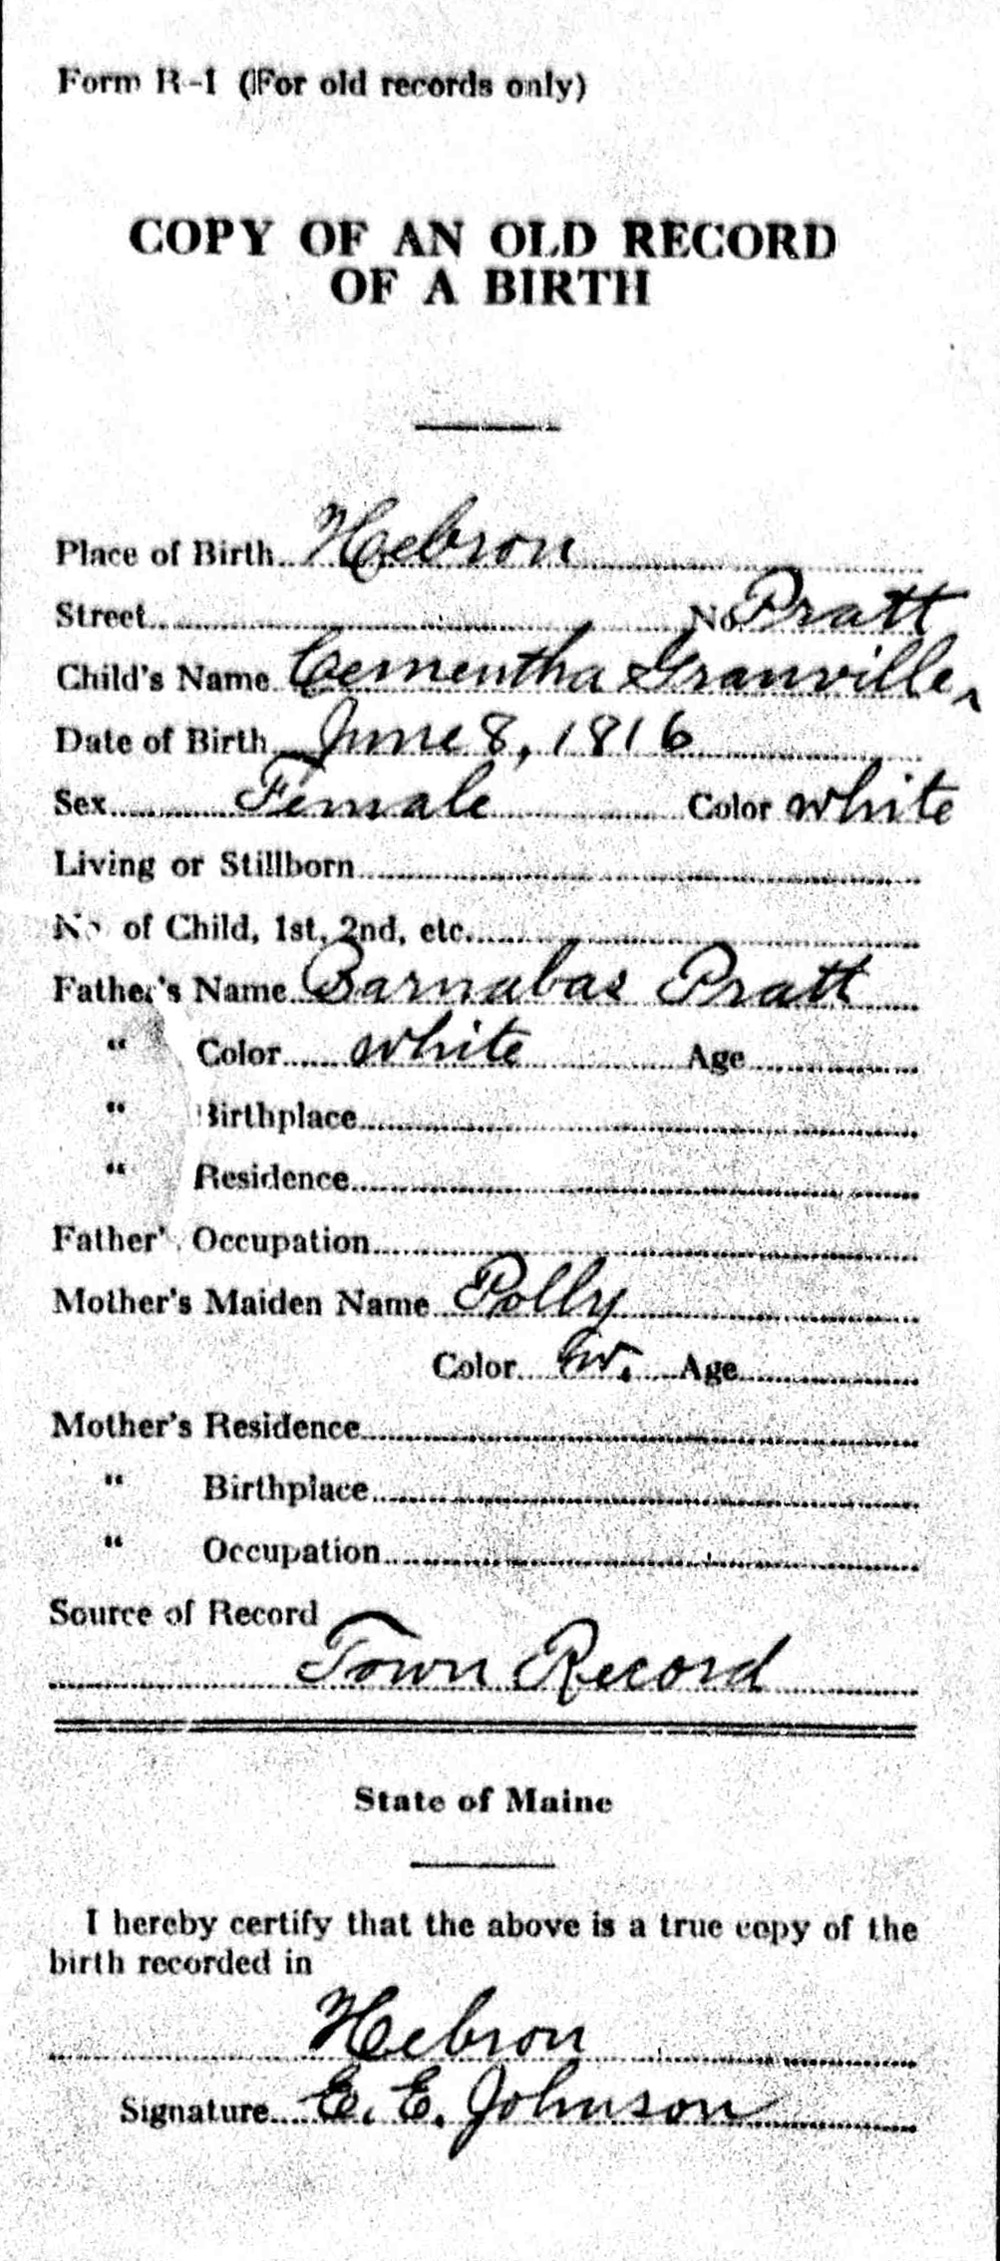 Form R-1 (For old records only)
COPY OF AN OLD RECORD
OF A BIRTH
Place of Birth Hebron
Street No. Pratt
Child's Name Cementha Granville ^
Date of Birth June 8, 1816
Sex Female Color white
Living or Stillborn
No of Child, 1st, 2nd, etc.
Father's Name Barnabas Pratt
" Color white Age
" Birthplace
" Residence
Father' Occupation
Mother's Maiden Name Polly
Color W. Age
Mother's Residence
" Birthplace
" Occupation
Source of Record
Town Record
State of Maine
I hereby certify that the above is a true copy of the
birth recorded in
Hebron
Signature E. E. Johnson